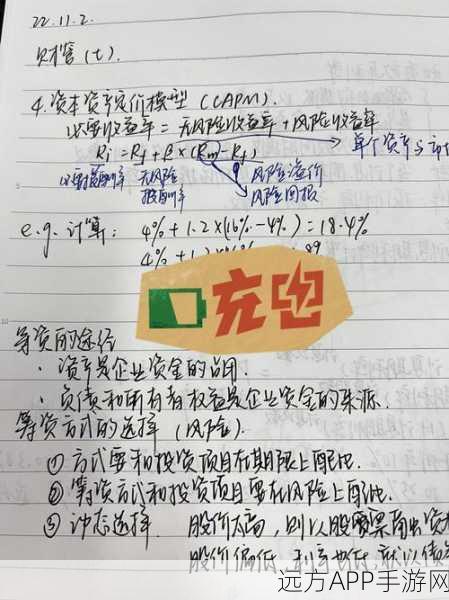 22.11.2.
财管(七).
4.资本资产定价模型(CAPM).
必要收益率=无风险收益率+风险收益率
Ri=Rf+β×(Rm-Rf)
单个资产与市
必要报酬率 无风险报酬率
风险溢价
风险回报
e.g.计算: 4%+1.2×(16%-4%)=18.4%
充电
筹资的途径
·资产是企业资金的占用
·负债和所有者权益是企业资金的来源.
筹资方式的选择(风险).
①方式要和投资项目在期限上配比.
②筹资方式和投资项目要在风险上配比.
③动态选择. 股价太高,则以股票筹资
股价偏低,利率也低,就以债
远方APP手游网